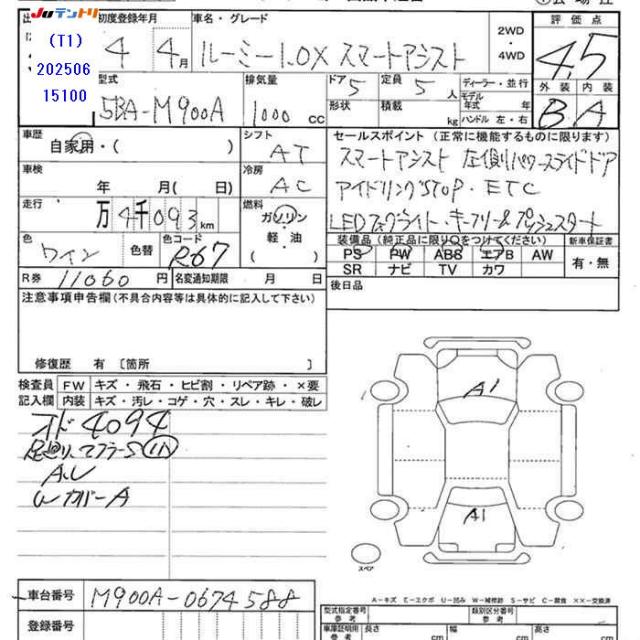 JUテントリ 初度登録年月 車名・グレード ①会場往
評価点
(T1)
202506
15100
4年 4月
ルーミー1.0X スマートアシスト
2WD
・
4WD
4.5
外装 内装
B A
型式
5BA-M900A
排気量
1000 CC
ドア 5
形状
定員 5人
積載 kg
ディーラー・並行
モデル
年式 年
ハンドル 左・右
車歴
自家用・( )
シフト
AT
セールスポイント (正常に機能するものに限ります)
スマートアシスト 左側パワースライドドア
アイドリングSTOP・ETC
LEDフォグライト・キーフリー&プッシュスタート
車検
年 月( 日)
冷房
AC
走行
万4千093km
燃料
ガソリン
軽油
( )
色
ワイン
色替
色コード
R67
装備品 (純正品に限り○をつけてください) 新車保証書
PS PW ABS エアB AW
SR ナビ TV カワ
有・無
R券 11060円 名変通知期限 月 日
後日品
注意事項申告欄(不具合内容等は具体的に記入して下さい)
修復歴 有 〔箇所 〕
検査員 FW キズ・飛石・ヒビ割・リペア跡・×要
記入欄 内装 キズ・汚レ・コゲ・穴・スレ・キレ・破レ
オド4094
足廻リ、マフラーS
AU
WカバーA
A1
A1
スペア
車台番号 M900A-0674588
登録番号
A-キズ E-エクボ U-凹み W-補修跡 S-サビ C-腐食 ××-交換済
型式指定番号
参考
類別区分番号
参考
車庫証明用
参考
長さ cm
幅 cm
高さ cm